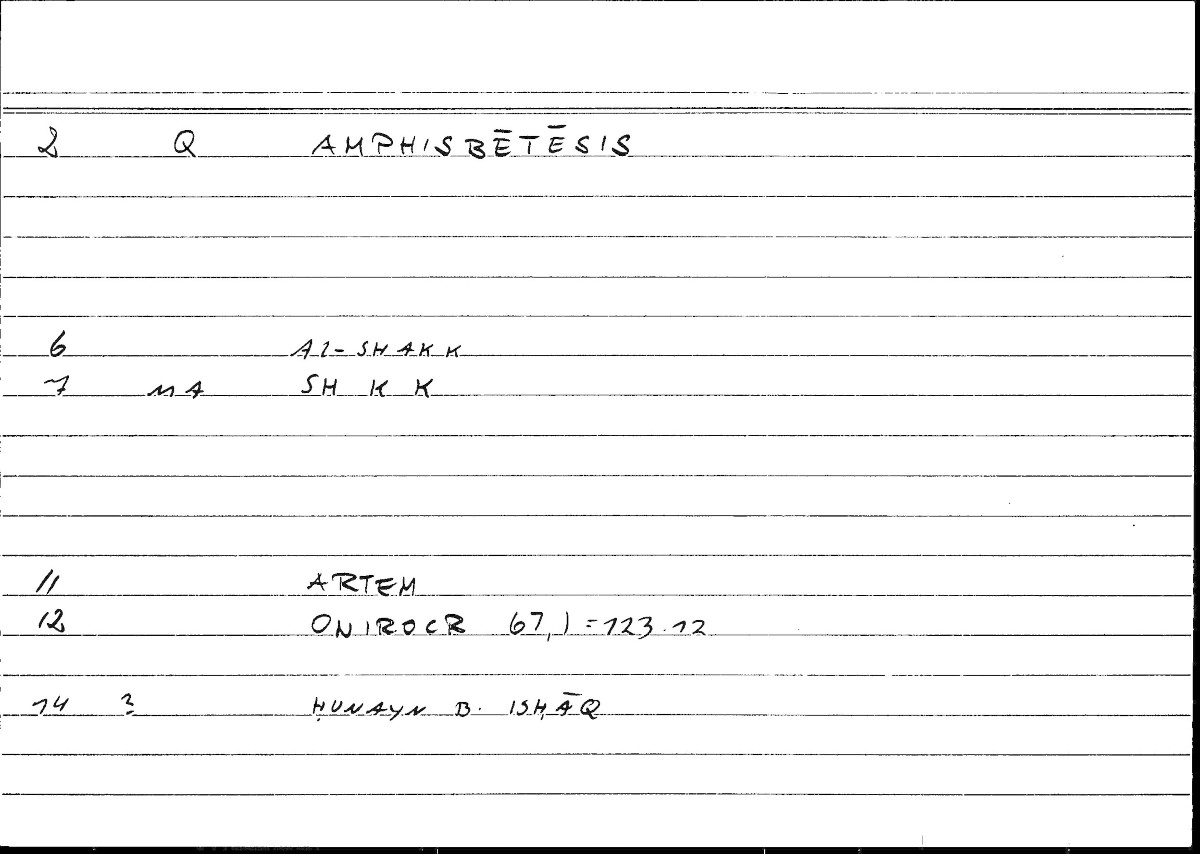 2 Q AMPHISBĒTĒSIS
6 Al-SHAKK
7 MA SH K K
11 ARTEM
12 ONIROCR 67,1=123.12
14 ? ḤUNAYN B. ISḤĀQ